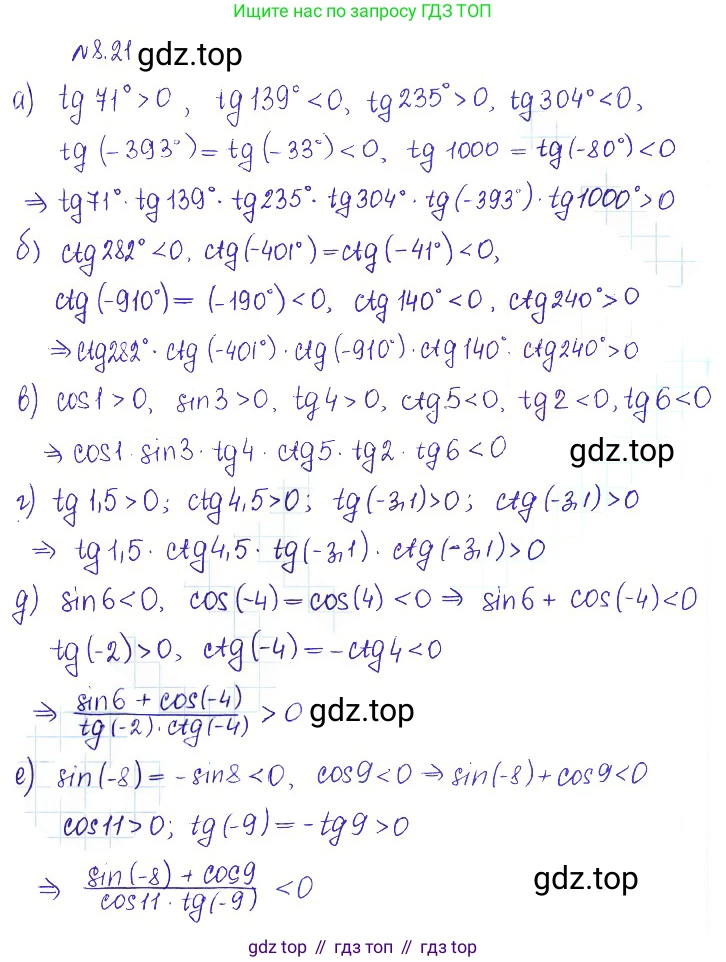 Ищите нас по запросу ГДЗ ТОП
№8.21 gdz.top
а) tg 71° > 0, tg 139° < 0, tg 235° > 0, tg 304° < 0,
tg (-393°) = tg (-33°) < 0, tg 1000 = tg(-80°) < 0
⇒ tg 71° · tg 139° · tg 235° · tg 304° · tg (-393°) · tg 1000° > 0
б) ctg 282° < 0, ctg (-401°) = ctg (-41°) < 0,
ctg (-910°) = (-190°) < 0, ctg 140° < 0, ctg 240° > 0
⇒ ctg 282° · ctg (-401°) · ctg (-910°) · ctg 140° · ctg 240° > 0
в) cos 1 > 0, sin 3 > 0, tg 4 > 0, ctg 5 < 0, tg 2 < 0, tg 6 < 0
⇒ cos 1 · sin 3 · tg 4 · ctg 5 · tg 2 · tg 6 < 0 gdz.top
г) tg 1,5 > 0; ctg 4,5 > 0; tg (-3,1) > 0; ctg (-3,1) > 0
⇒ tg 1,5 · ctg 4,5 · tg (-3,1) · ctg (-3,1) > 0
д) sin 6 < 0, cos (-4) = cos (4) < 0 ⇒ sin 6 + cos (-4) < 0
tg (-2) > 0, ctg (-4) = - ctg 4 < 0
⇒ sin 6 + cos (-4) / tg (-2) · ctg (-4) > 0 gdz.top
е) sin (-8) = - sin 8 < 0, cos 9 < 0 ⇒ sin (-8) + cos 9 < 0
cos 11 > 0; tg (-9) = - tg 9 > 0
⇒ sin (-8) + cos 9 / cos 11 · tg (-9) < 0 gdz.top
gdz top // гдз топ // гдз.топ